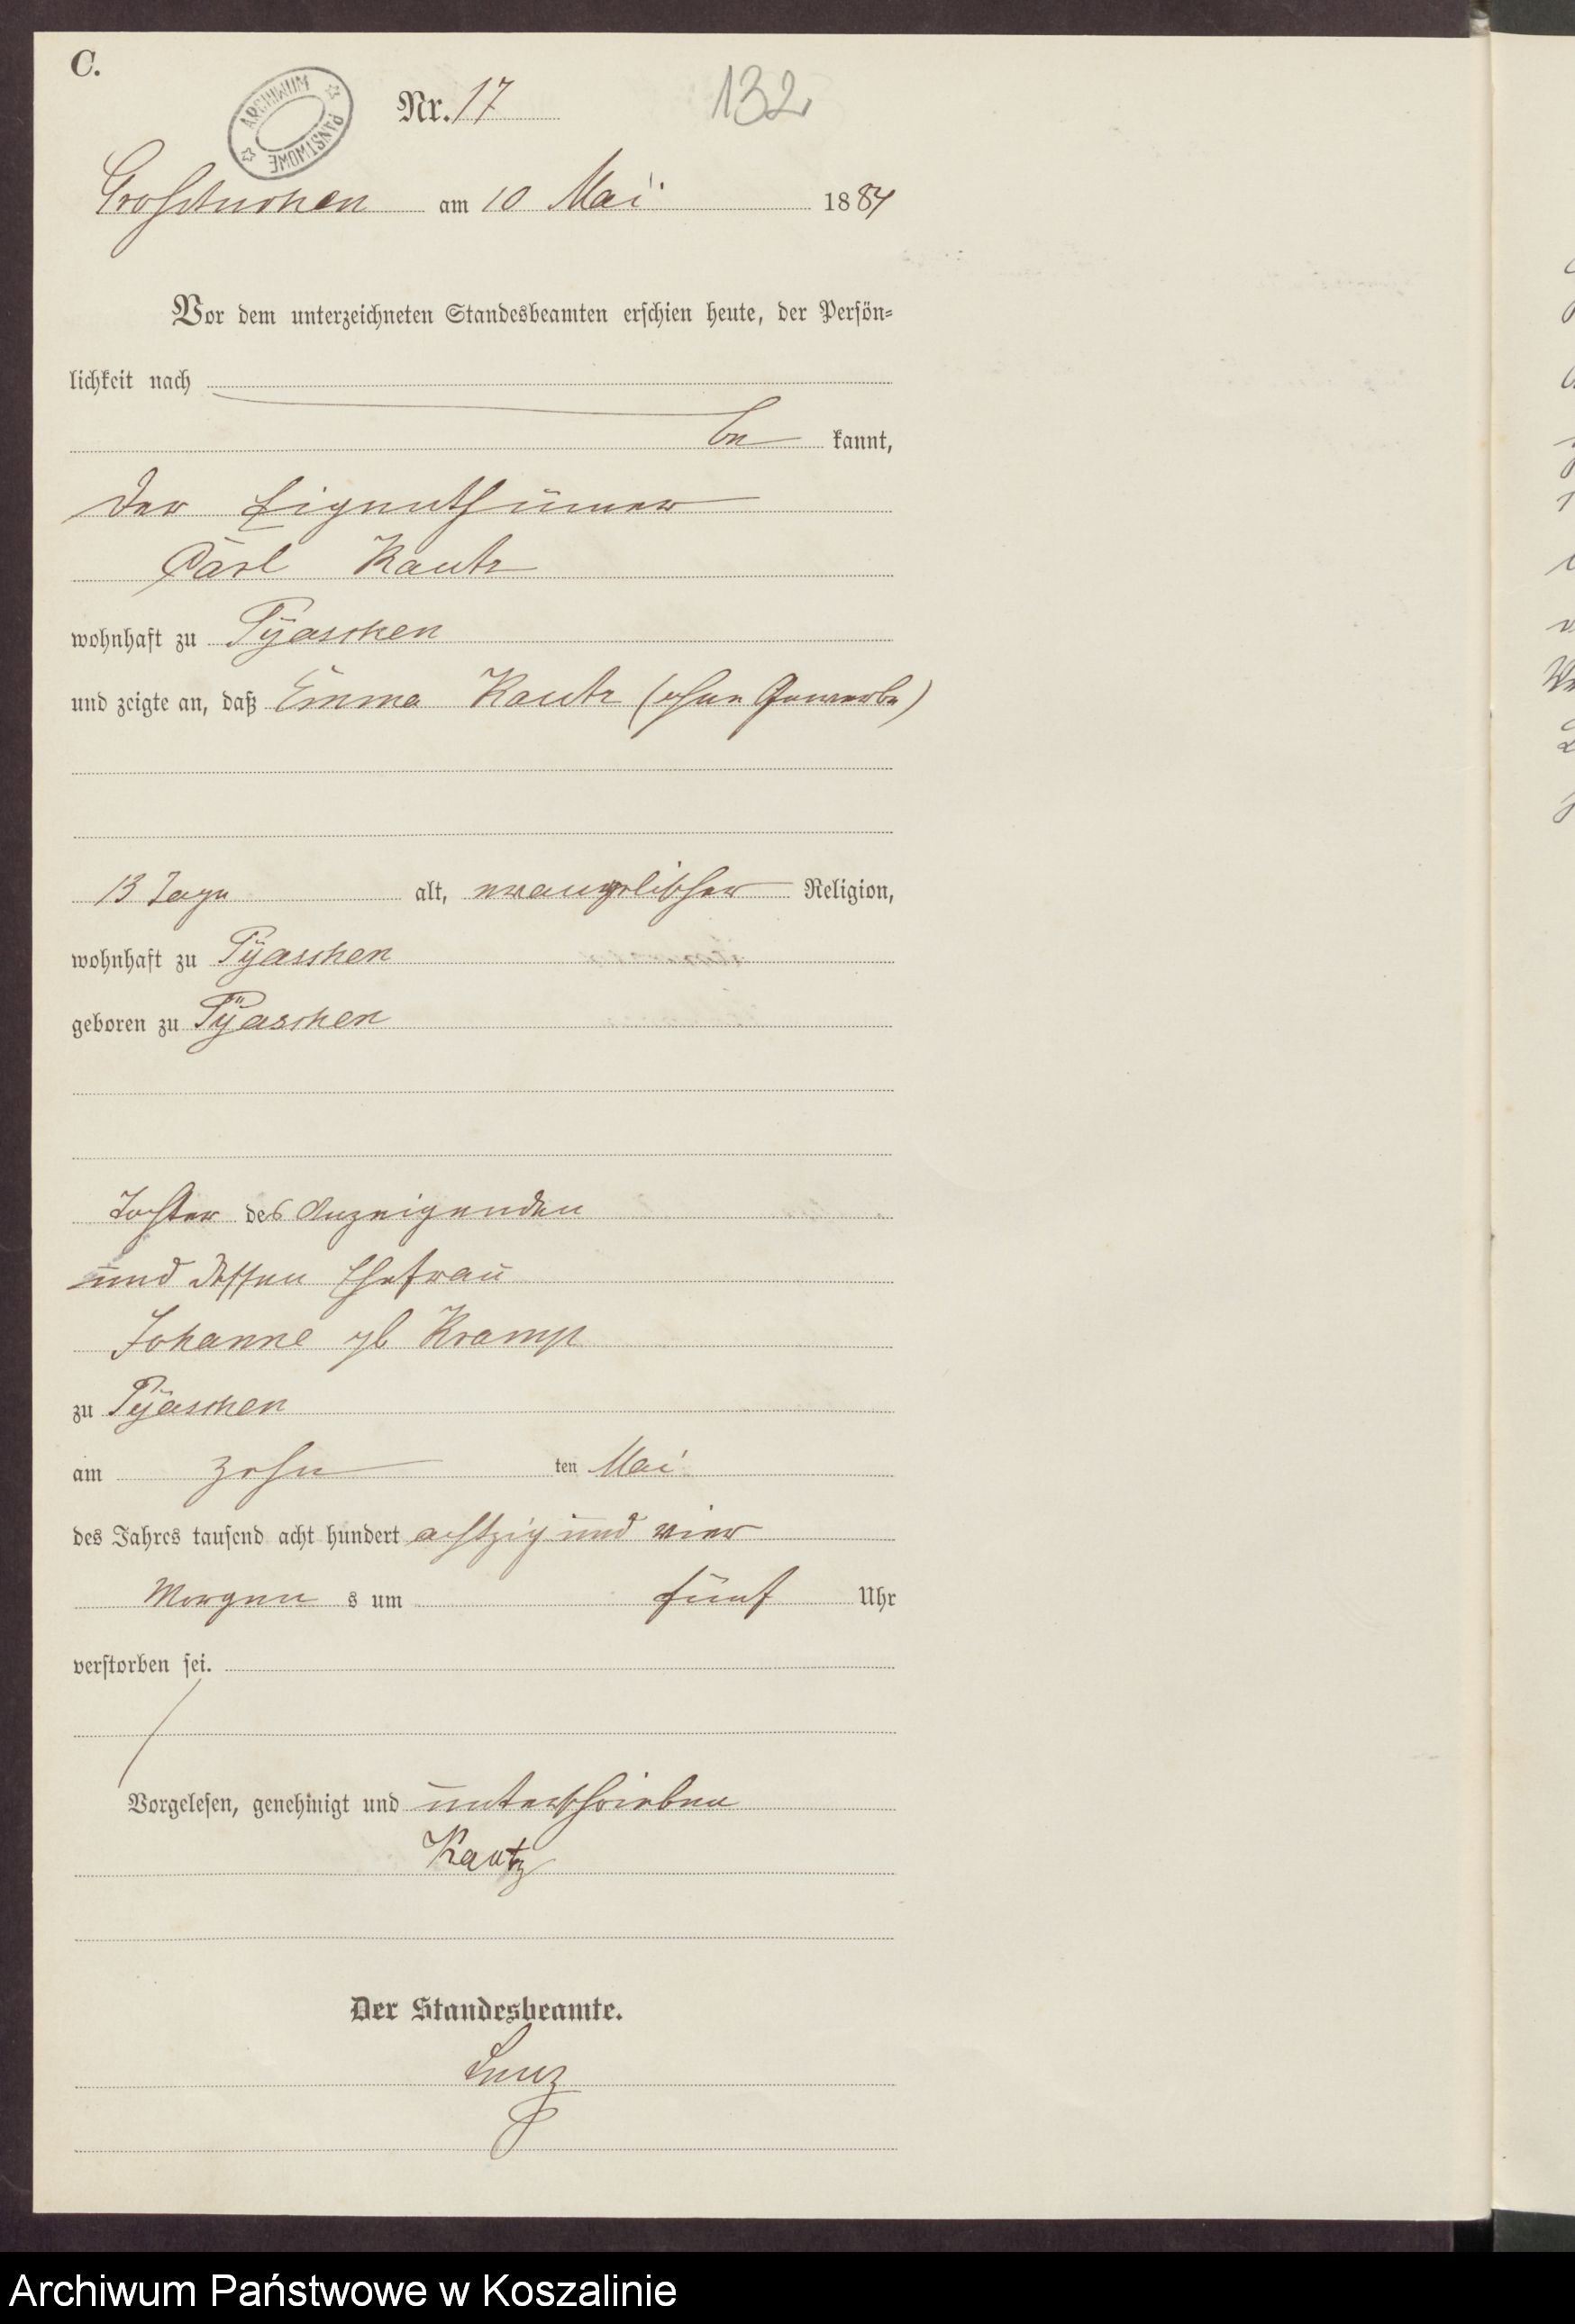 C.
ARCHIWUM PAŃSTWOWE
Nr. 17
132
Großtuchen am 10 Mai 1884
Vor dem unterzeichneten Standesbeamten erschien heute, der Persön-
lichkeit nach
be kannt,
der Eigenthümer
Carl Kautz
wohnhaft zu Pyaschen
und zeigte an, daß Emma Kautz (ohne Gewerbe)
13 Tage alt, evangelischer Religion,
wohnhaft zu Pyaschen
geboren zu Pyaschen
Tochter des Anzeigenden
und dessen Ehefrau
Johanne gb Kramp
zu Pyaschen
am zehn ten Mai
des Jahres tausend acht hundert achtzig und vier
Morgen s um fünf Uhr
verstorben sei.
Vorgelesen, genehmigt und unterschrieben
Kautz
Der Standesbeamte.
Lenz
Archiwum Państwowe w Koszalinie